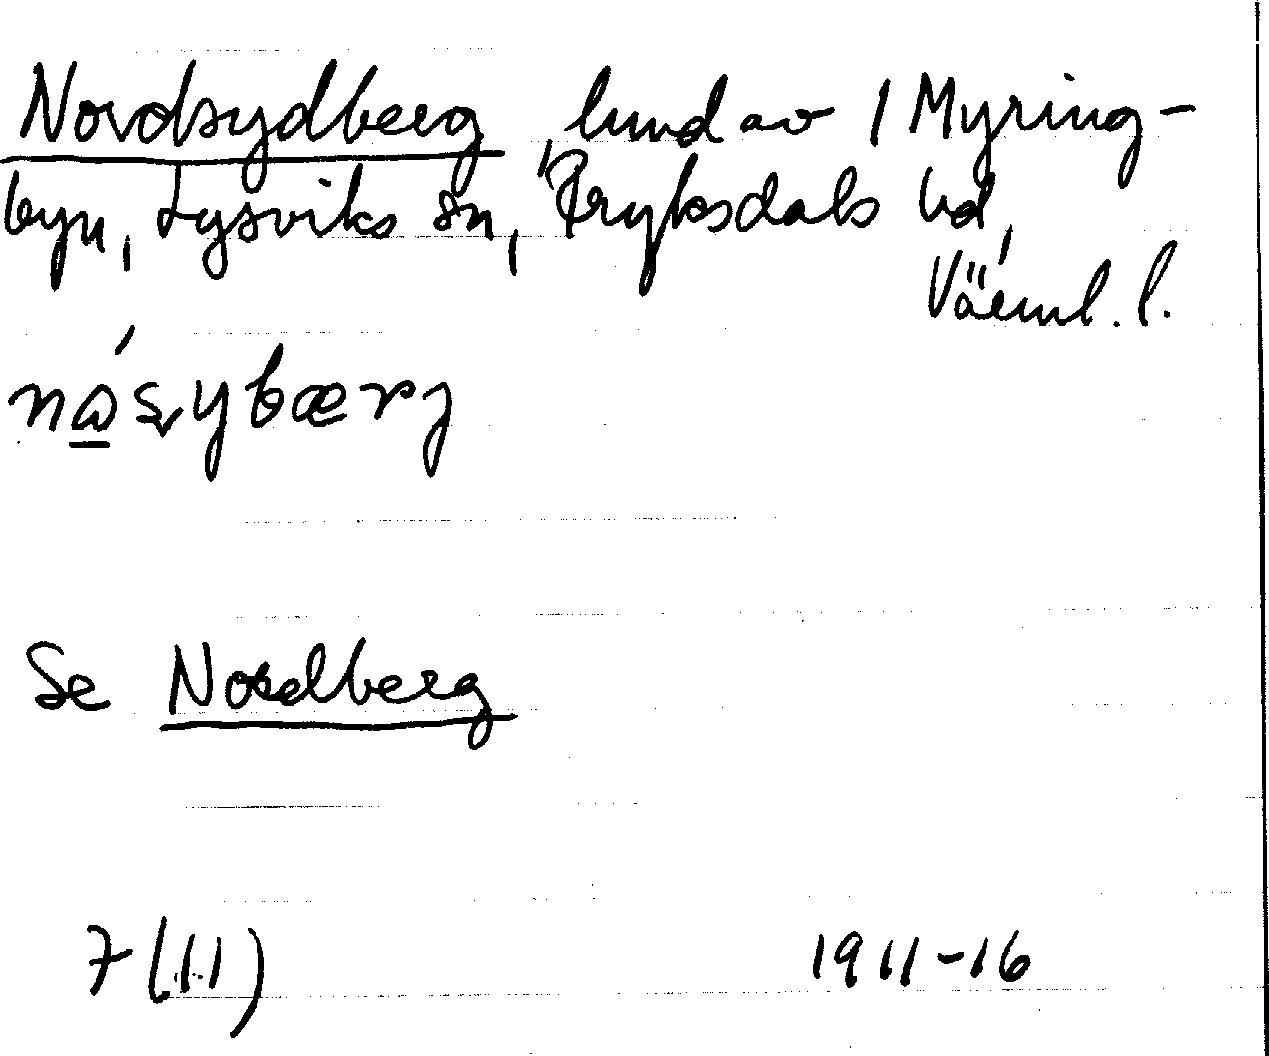 Nordsydberg, lund av 1 Myring-
byn, Lysviks sn, Fryksdals hd,
Värml. l.
Se Nordberg
7 (11) 1911-16